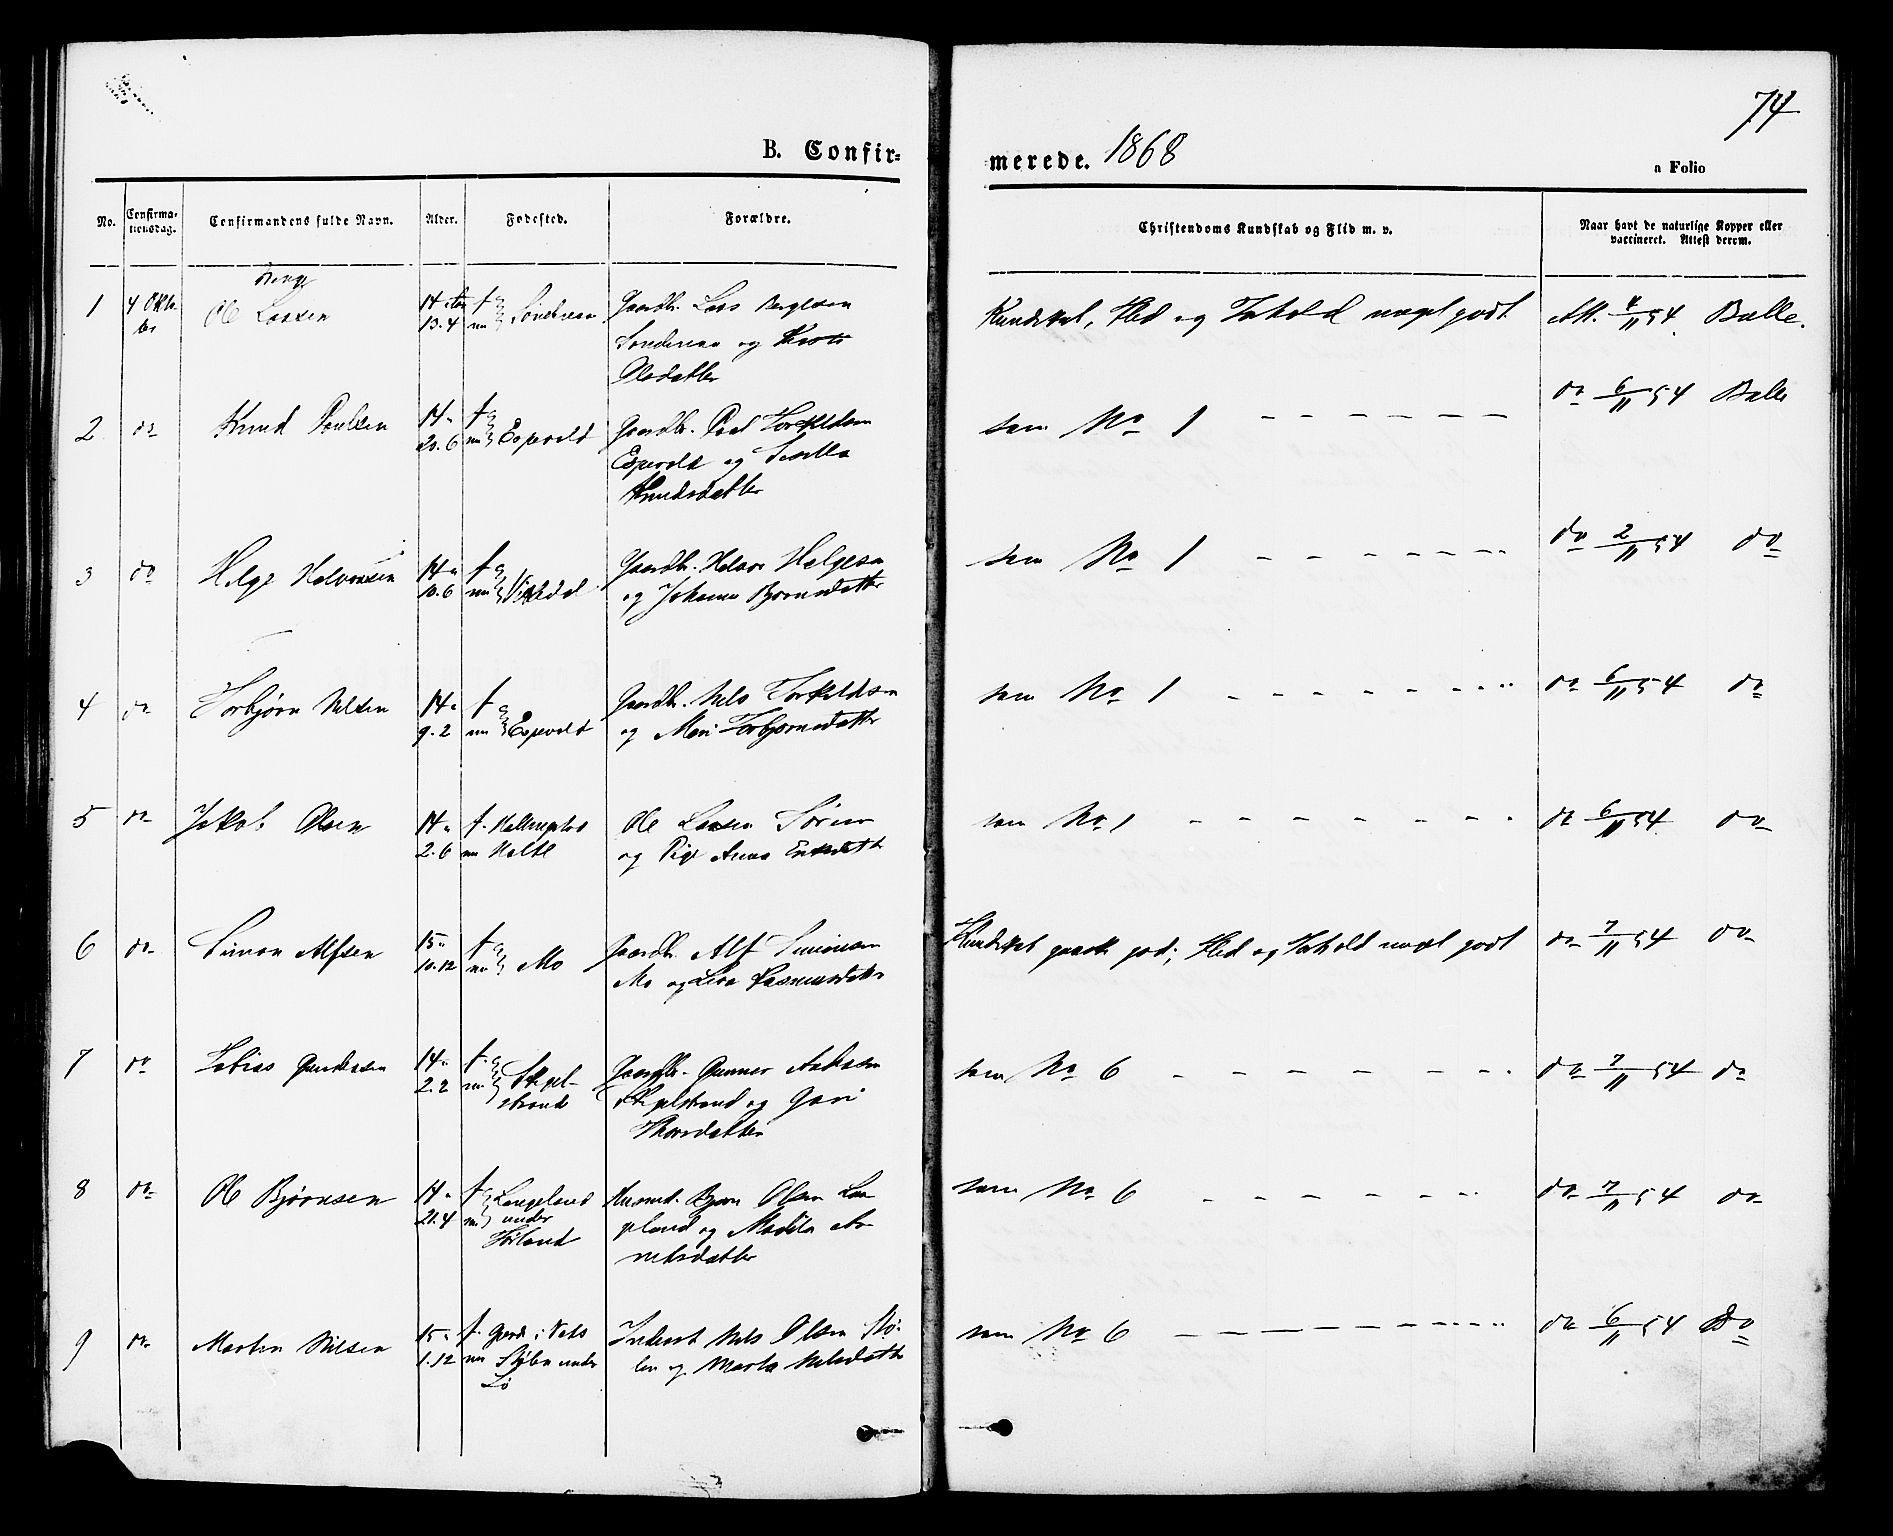 74
B. Confir-
merede. 1868
a Folio
No.
Confirma-
tionsdag.
Confirmandens fulde Navn.
Alder.
Fødested.
Forældre.
Christendoms Kundskab og Flid m. v.
Naar havt de naturlige Kopper eller
vaccineret. Attest derom.
Dreng
1 4 Okto
ber
Ole Larsen
14
13.4
f og
nu
Gaardb. Lars
og
Olsdatter
Kundskab, Flid og Forhold meget godt
Att. 4/11 54 Balle.
2 do
Knud Poulsen
14
20.6
f og
nu Espevold
Gaardb. Poul Torkildsen
Espevold og Sisilla
Knudsdatter
som No 1 - - - - - -
do 6/11 54 Balle
3 do
Helge Halvorsen
14
10.6
f og
nu Vigdal
Gaardb. Halvor Helgesen
og Johanne Bjørnsdatter
som No 1 - - - - - -
do 2/11 54 do
4 do
Torbjørn Nilsen
14
9.2
f og
nu Espevold
Gaardb. Nils Torkildsen
og Mari Torbjørnsdatter
som No 1 - - - - - -
do 6/11 54 do
5 do
Jakob Olsen
14
2.6
f.
nu
Ole Larsen
og Pige Anna
som No 1 - - - - - -
do 6/11 54 do
6 do
Simon Alfsen
15
10.12
f og
nu Mo
Gaardb. Alf Simonsen
Mo og Rasmusdatter
Kundskab ganske god; Flid og Forhold meget godt
do 7/11 54 do
7 do
Tobias Gundersen
14
2.2
f. og
nu Skjel-
strand
Gaardb. Gunner
Skjelstrand og Guri
som No 6 - - - - - -
do 7/11 54 do
8 do
Ole Bjørnsen
14
21.4
f og
nu Langeland
under
Høiland
Husmd. Bjørn Olsen Lan
geland og
som No 6 - - - - - -
do 7/11 54 do
9 do
Morten Nilsen
15
1.12
f.
nu Stølen under
Lø
Inderst Nils Olsen Stø-
len og Marta Nilsdatter
som No 6 - - - - - -
do 6/11 54 Do